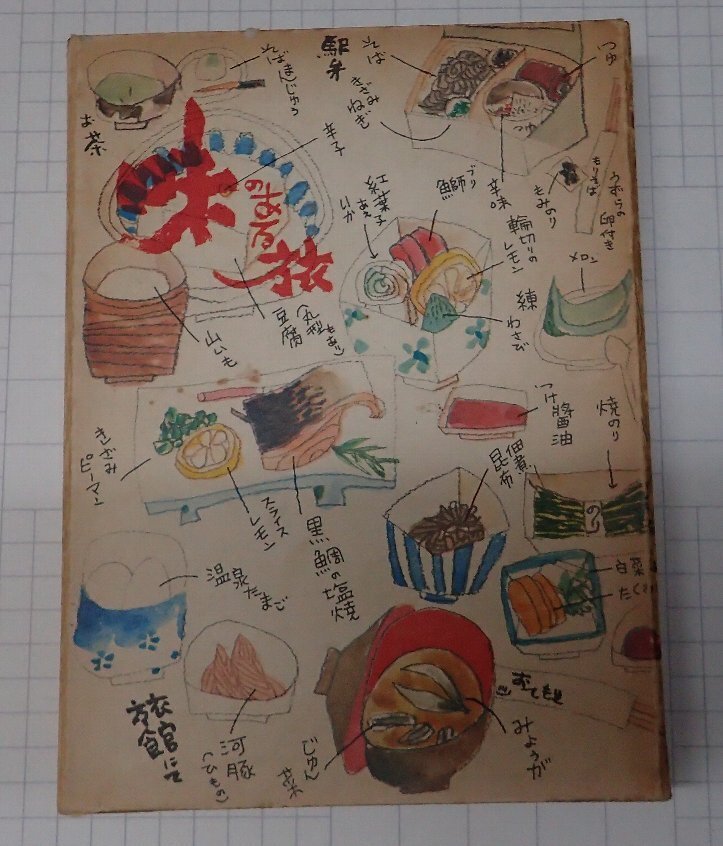 お茶
そばまんじゅう
駅弁
そば
きざみ
ねぎ
つゆ
つゆ
辛味
もみのり
もりそば
うずらの
卵付き
味
のある
旅
辛子
豆腐
(丸型もあり)
山いも
紅葉子
あえ
いか
鰤ブリ
輪切りの
レモン
練
わさび
メロン
つけ
醤油
焼のり
のり
きざみ
ピーマン
スライス
レモン
黒鯛の塩焼
佃煮
昆布
白菜
たく
温泉たまご
河豚
(ひもの)
旅館にて
じゅん菜
みょうが